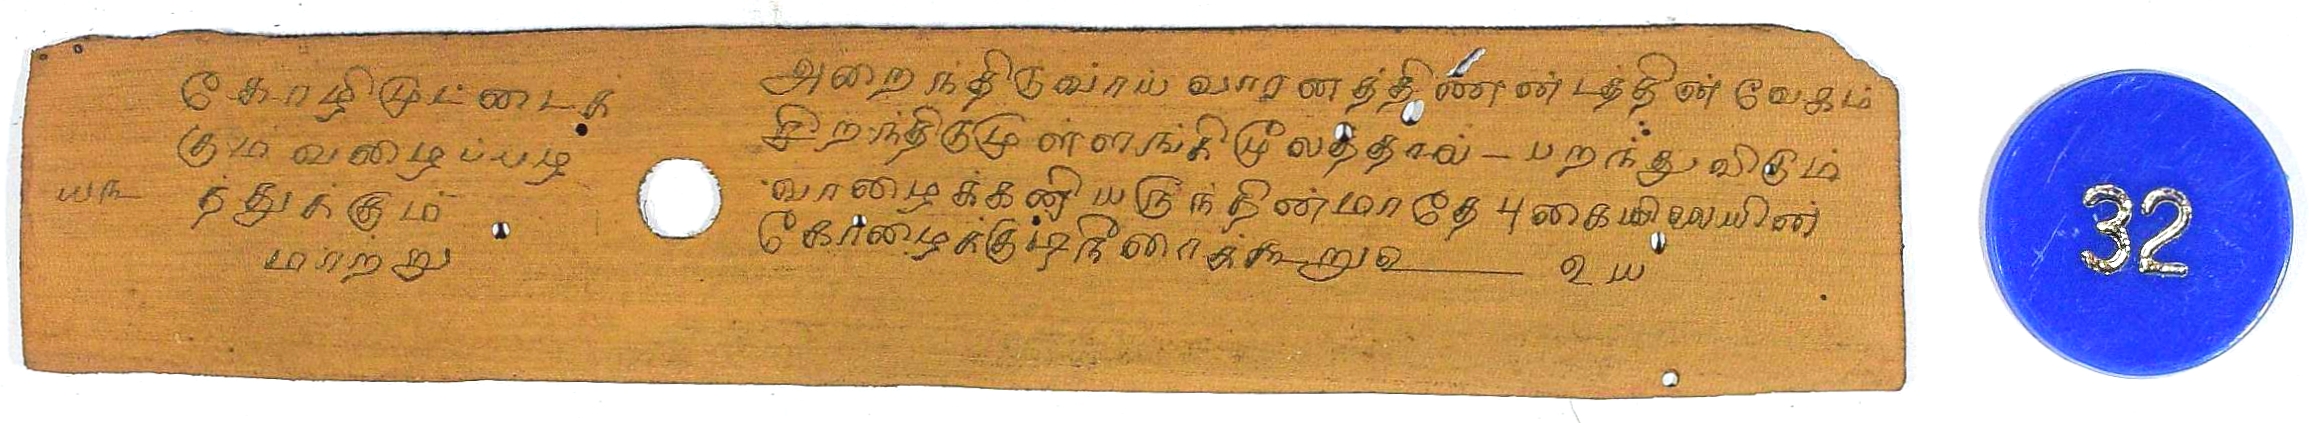 கோழிமுட்டைக்
கும் வாழைப்பழ
யரு த்துக்கும்
மாற்று
அறைந்திடுவாய் வாரணத்தின்ண்டத்தின் வேகம்
இறந்திடுமுள்ளங்கிமூலத்தால் - பறந்து விடும்
வாழைக்கனியருந்தின்மாதே புகையிலையின்
கோழைக்குடிநீனாக்கூறு உ——— உ ய
32